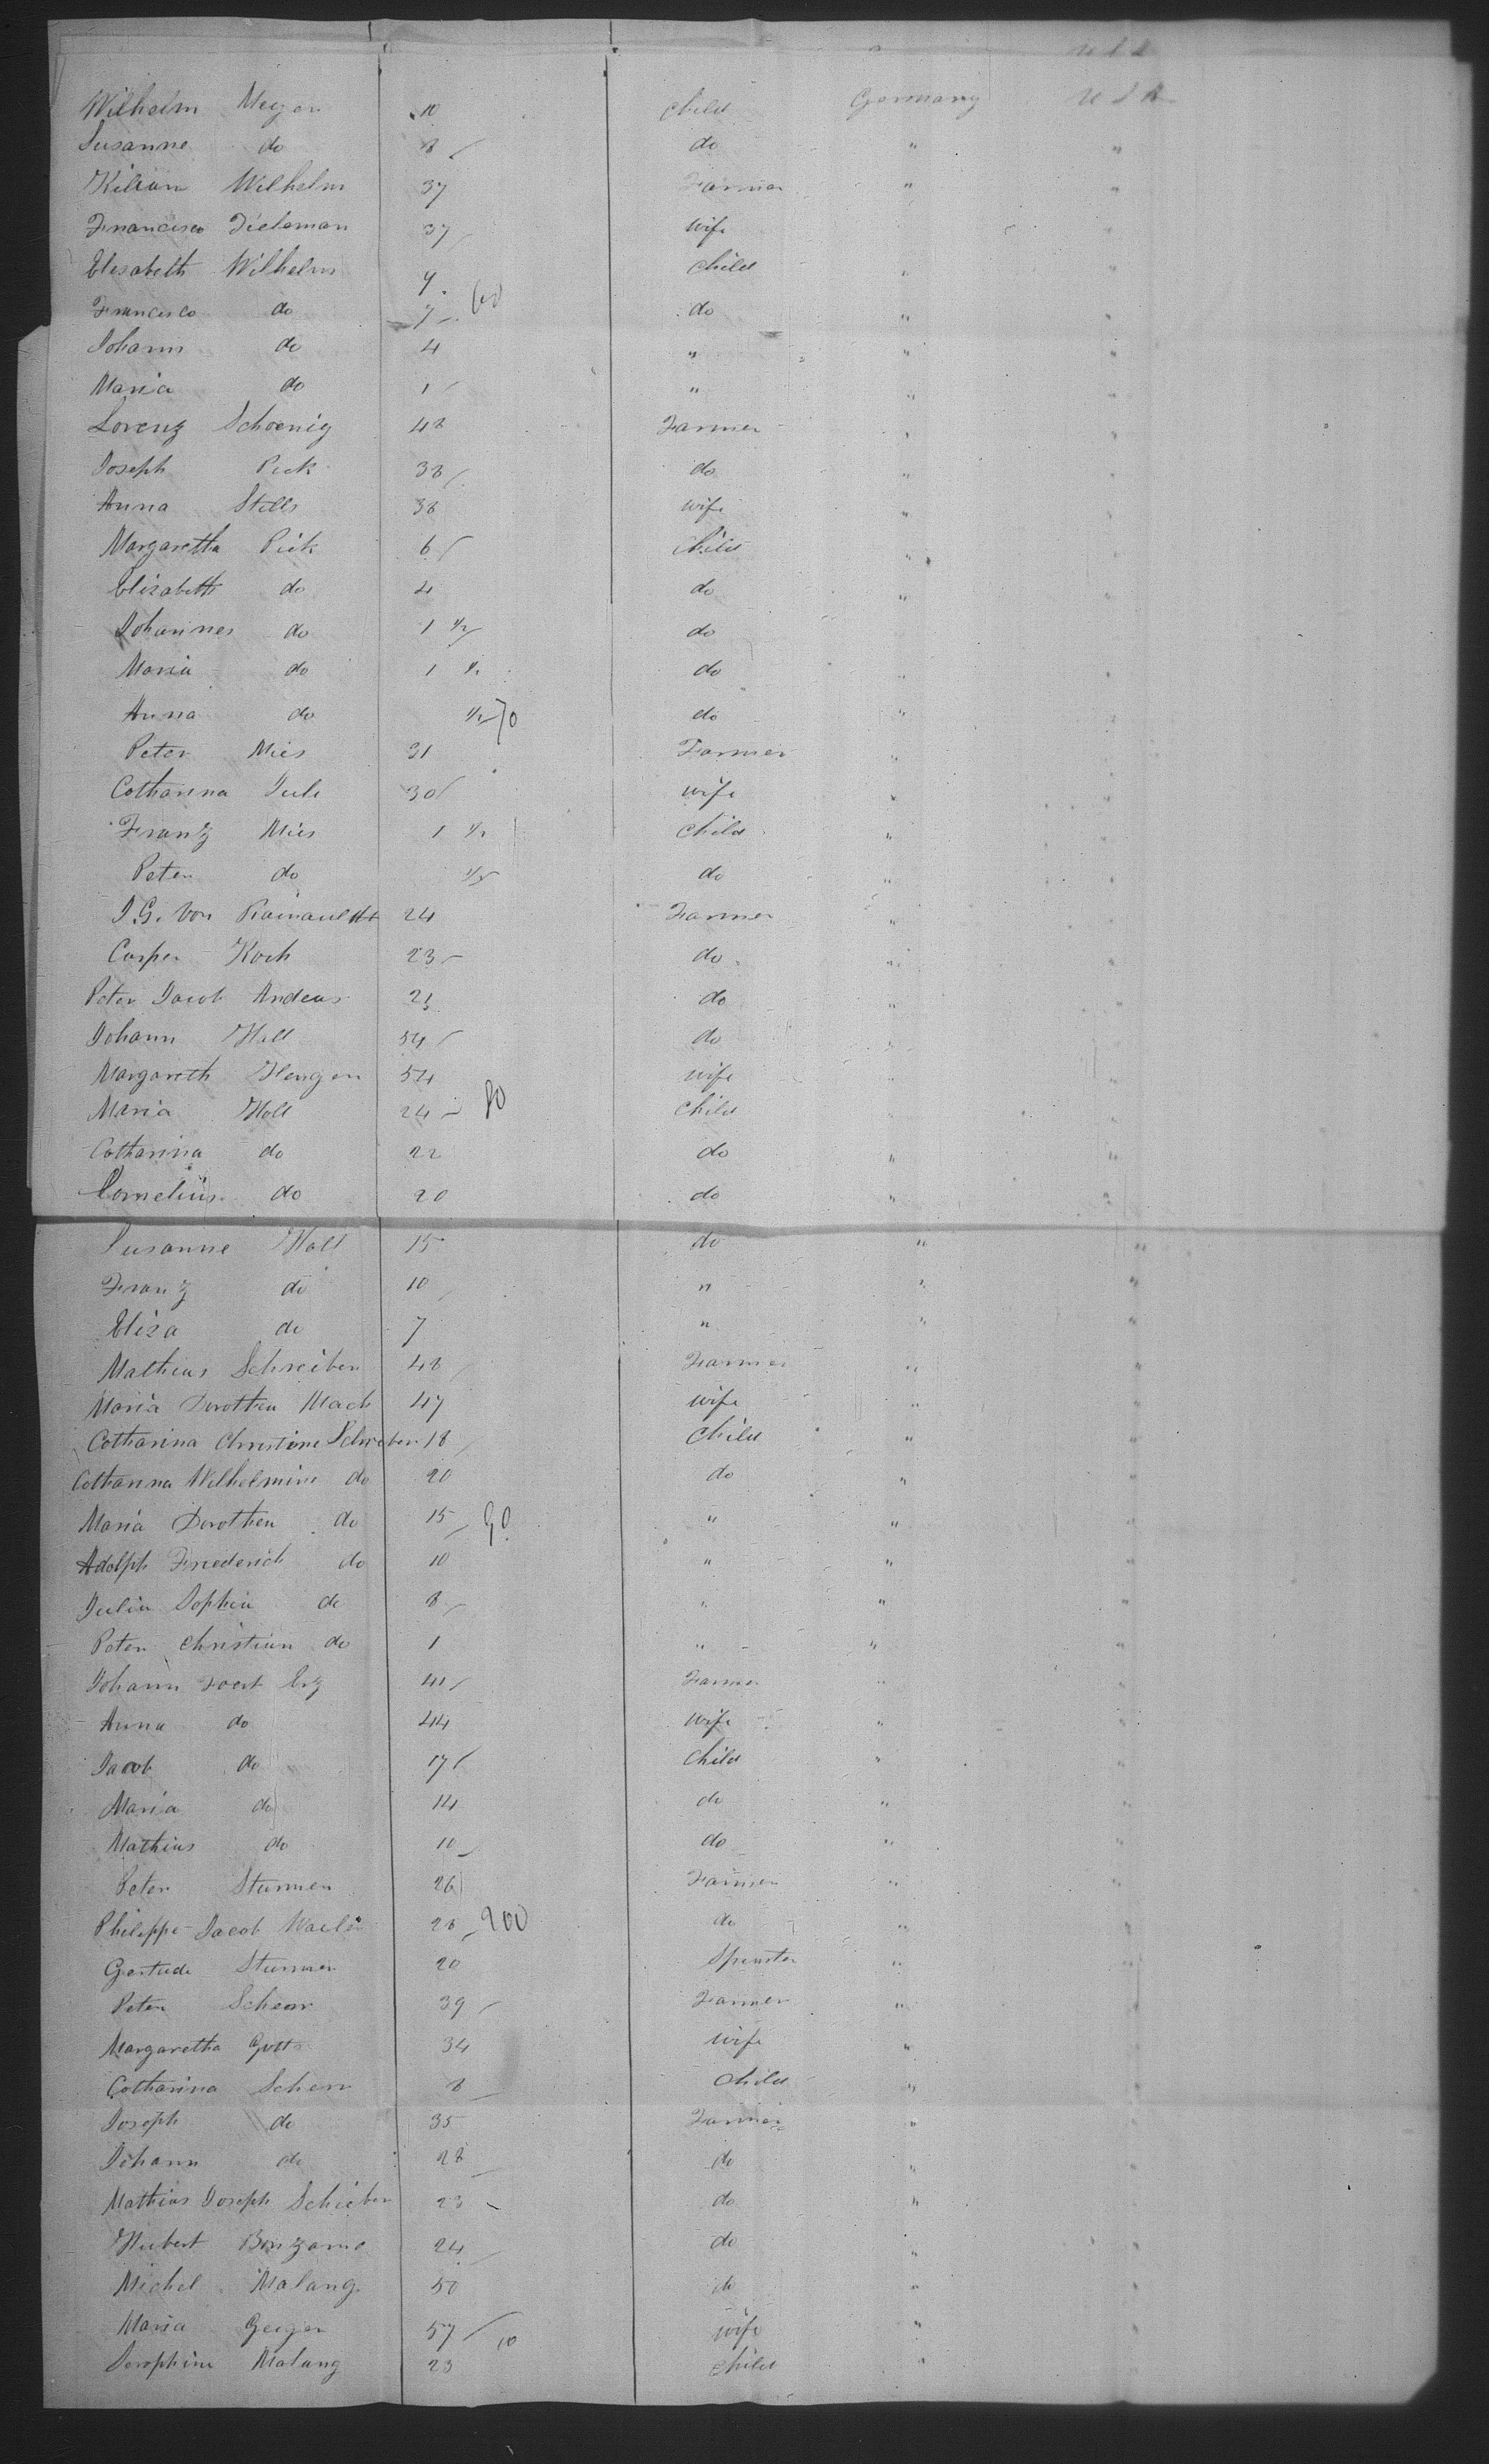 U S A
Wilhelm Meyer 10 child Germany U S A
Susanne do 8 do " "
Kilian Wilhelm 37 Farmer " "
Francisco Tieleman 37 wife "
Elisabeth Wilhelm 9 child " "
Francisco do 7 60 do " "
Johann do 4 " " "
Maria do 1 " " "
Lorenz Schoenig 48 Farmer " "
Joseph Pick 38 do " "
Anna Stills 38 wife " "
Margaretta Pick 6 child " "
Elisabeth do 4 do " "
Johannes do 1 1/2 do "
Maria do 1 1/2 do " "
Anna do 1/2 70 do "
Peter Mies 31 Farmer " "
Catharina Jule 30 wife " "
Frantz Mies 1 1/2 child " "
Peter do 1/2 do " "
J. G. Von 24 Farmer " "
Casper Koch 23 do " "
Peter Jacob Andeas 23 do " "
Johann Holl 54 do " "
Margareth Hengen 54 wife " "
Maria Holl 24 80 child "
Catharina do 22 do " "
Cornelius do 20 do " "
Susanne Holl 15 do " "
Franz do 10 " " "
Elisa do 7 " " "
Mathias Schreiber 48 Farmer " "
Maria Dorothea Mach 47 wife " "
Catharina Christine Schreiber 18 child " "
Catharina Wilhelmine do 20 do " "
Maria Dorothea do 15 90 " " "
Adolph Friederich do 10 " " "
Julia Sophia do 8 " " "
Peter Christian do 1 " " "
Johann Joest Erz 41 Farmer " "
Anna do 44 wife " "
Jacob do 17 child " "
Maria do 14 do " "
Mathias do 10 do " "
Peter Stummer 26 Farmer " "
Philippe Jacob 28 200 do " "
Gertude Stummer 20 Spinster " "
Peter Scherr 39 Farmer " "
Margaretha Gott 34 wife " "
Catharina Scherr 8 child " "
Joseph do 35 Farmer " "
Johann do 28 do " "
Mathias Joseph Schieber 23 do " "
Hubert 24 do " "
Michel Malang 50 do " "
Maria Geiger 57 10 wife " "
Serophine Malang 23 child "